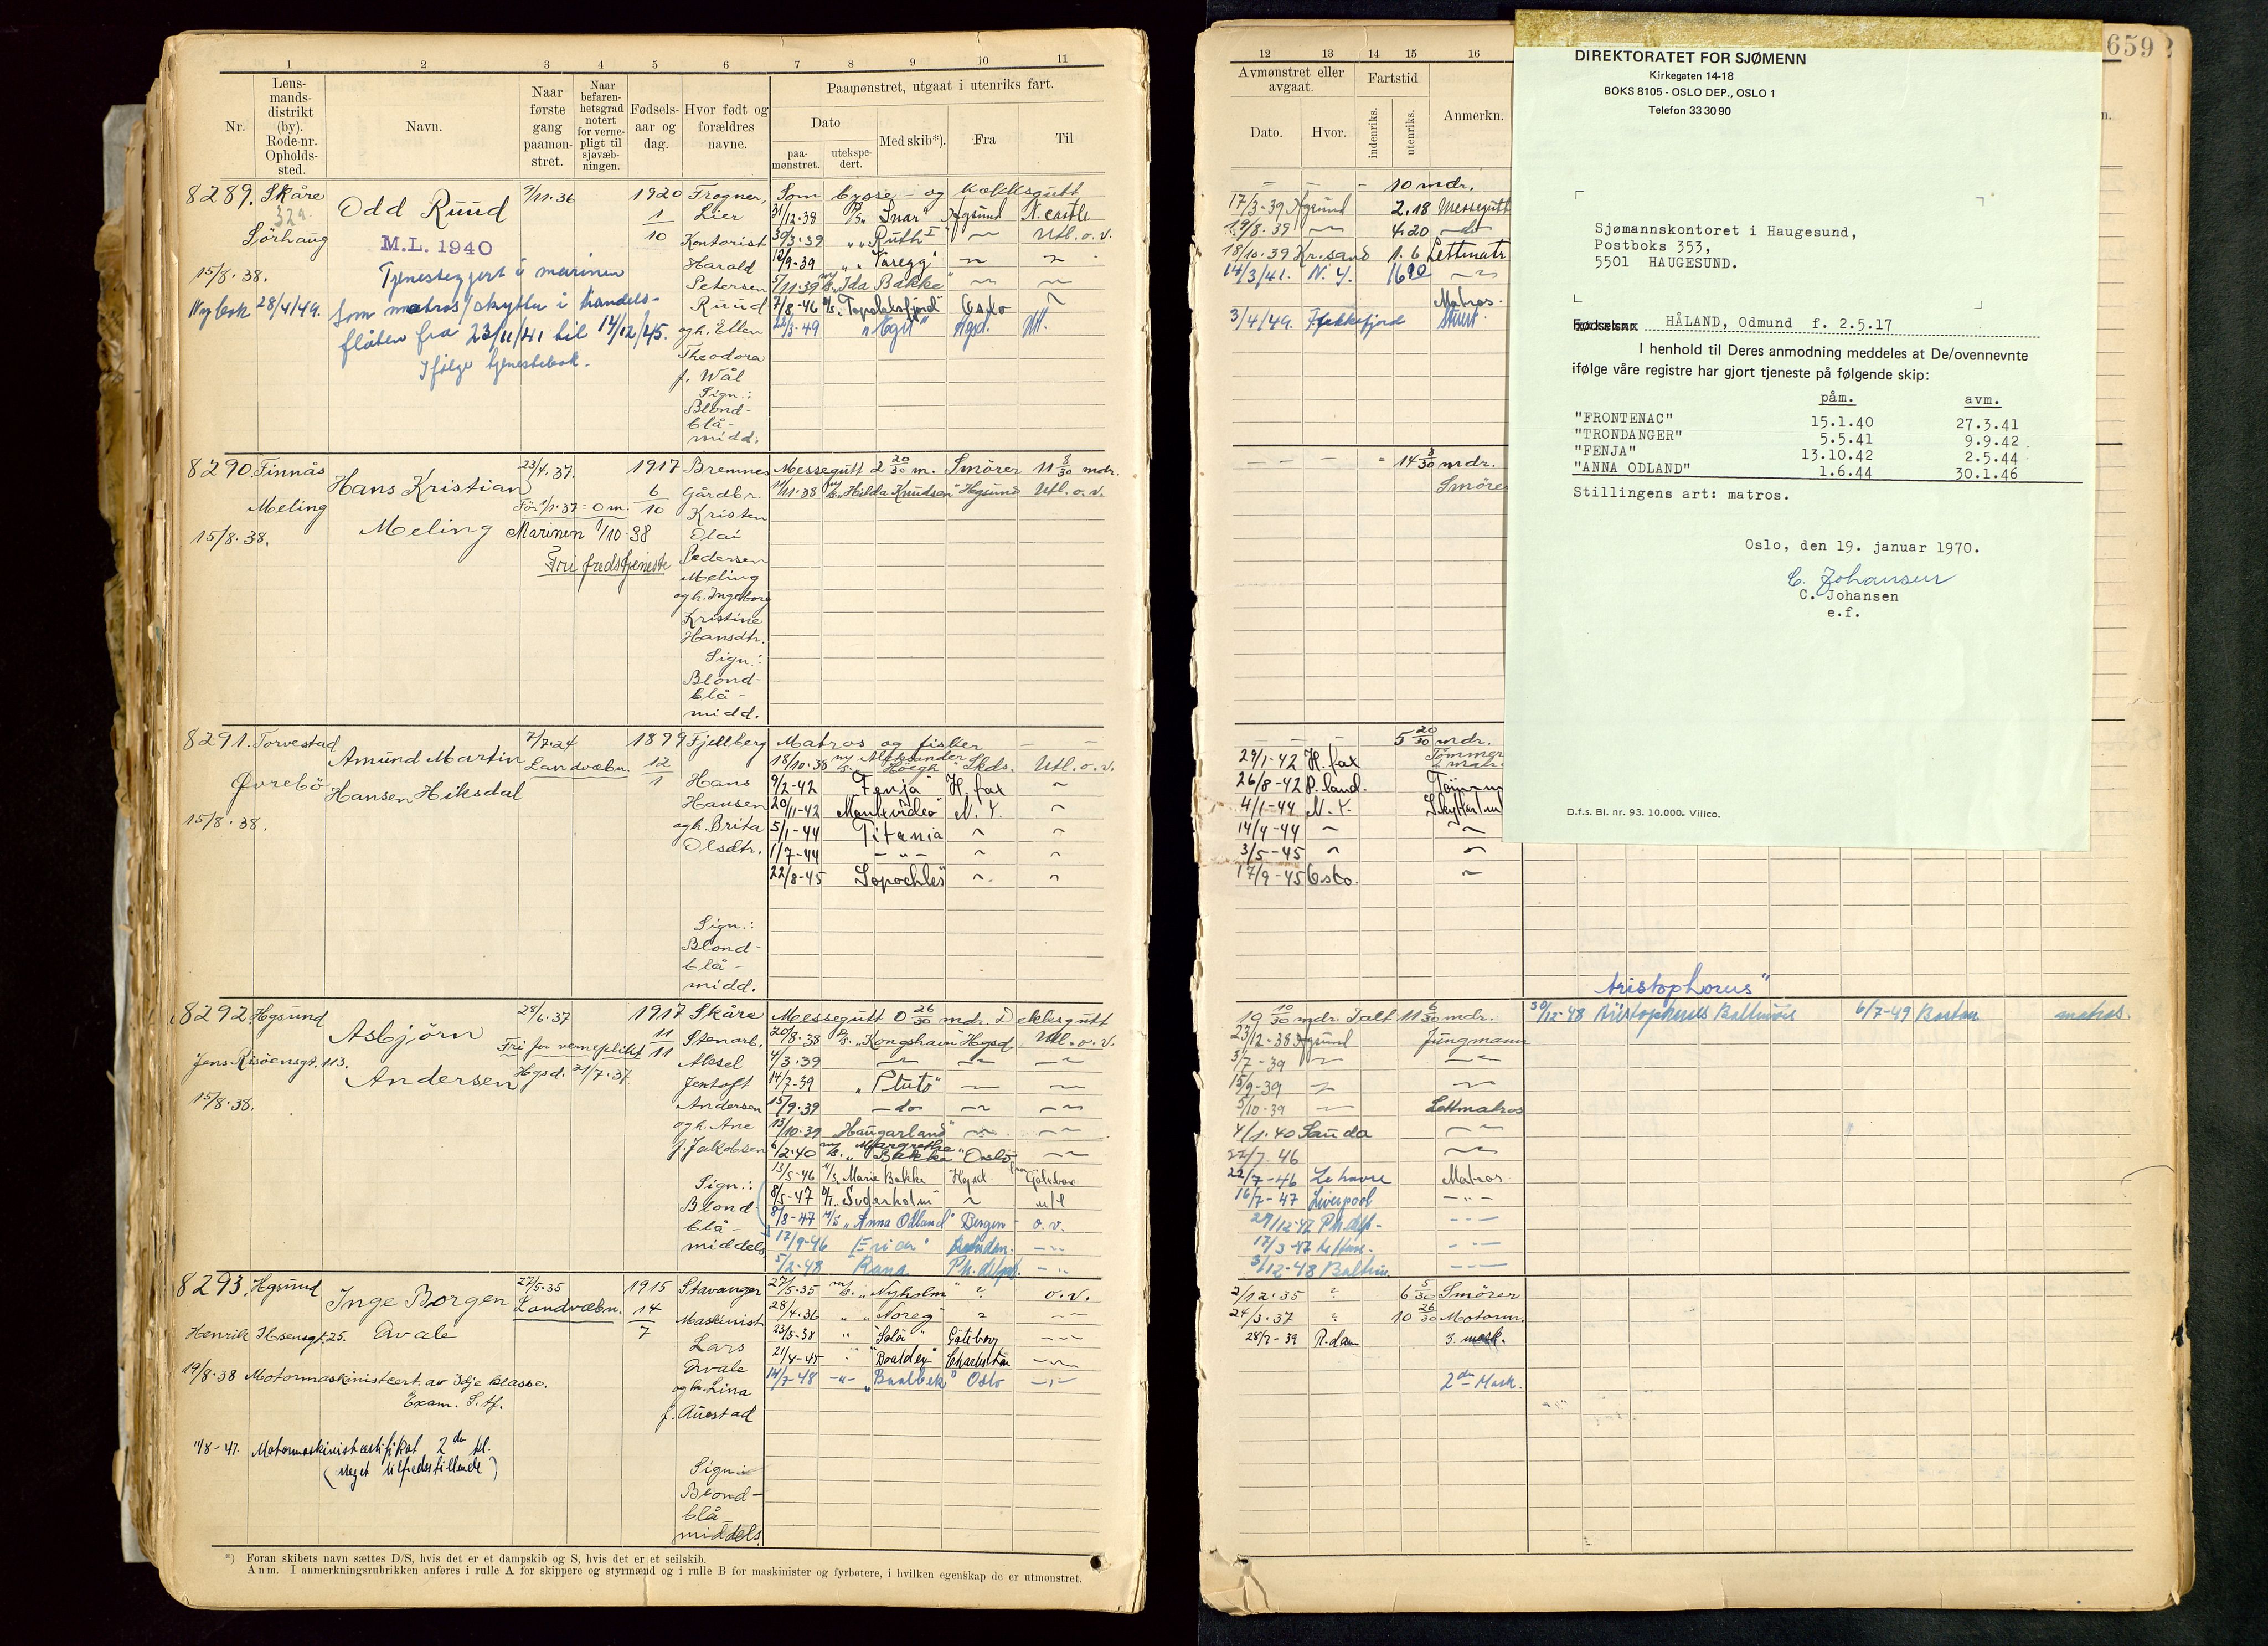 1 2 3 4 5 6 7 8 9 10 11
Nr.
Lens-
mands-
distrikt
(by).
Rode-nr.
Opholds-
sted.
Navn.
Naar
første
gang
paamøn-
stret.
Naar
befaren-
hetsgrad
notert
for verne-
pligt til
sjøvæb-
ningen.
Fødsels-
aar og
dag.
Hvor født og
forældres
navne.
Paamønstret, utgaat i utenriks fart.
Dato
paa-
mønstret.
utekspe-
dert.
Med skib*).
Fra
Til
8289. Skåre
Sørhaug
15/8.38.
Ny bok 28/4/49.
Odd Ruud
M.L. 1940
Tjenestegjort i marinen
som matros/skytter i handels-
flåten fra 23/11/41 til 14/12/45.
Ifølge tjenestebok.
9/11.36
1920
1
10
Frogner,
Lier
Kontorist
Harald
Petersen
Ruud
og h. Ellen
Theodora
f. Wål
Sign.:
Blond-
blå-
midd.
Som bysse- og kokksgutt
31/12.38 D/S. "Snar" Hgsund N. castle
30/3.39 " "Ruth I" Utl. o. v.
12/9.39 " "Varegg"
5/11.39 m/s. "Ida Bakke"
7/8-46 "Topdalsfjord" Oslo
22/3-49 "Egil" Hgsd. Utl.
8290. Finnås
Meling
15/8.38.
Hans Kristian
Meling
23/4.37.
Før 1/1.37 = 0 m.
Marinen 1/10-38
Fri fredstjeneste
1917
6
10
Bremnes
Gårdbr.
Kristen
Olai
Pedersen
Meling
og h. Ingeborg
Kristine
Hansdtr.
Sign.:
Blond-
blå-
midd.
Messegutt 2 20/30 m. Smører 11 8/30 mdr.
11/11.38 m/s. "Hilda Knudsen" Hgsund Utl. o. v.
8291. Torvestad
Øvrebö
15/8.38.
Amund Martin
Hansen Hiksdal
7/7.24
Landvæbn.
1899
12
1
Fjellberg
Hans
Hansen
og h. Brita
Olsdtr.
Sign.:
Blond-
blå-
midd.
Matros og fisker
18/10.38 m/s. "Aleksander Höegh" Skds. Utl. o. v.
9/2-42 Fenja H. fax
20/11-42 Montevideo N. Y.
5/1-44 Titania
1/7-44 - " -
22/8-45
8292. Hgsund
Jens Risøensgt. 113.
15/8.38.
Asbjörn
Andersen
28/6.37
Fri for verneplikt
Hgsd. 21/7.37
1917
11
11
Skåre
Stenarb.
Aksel
Jentoft
Andersen
og h. Ane
f. Jakobsen
Sign.:
Blond-
blå-
middels
Messegutt 0 26/30 mdr. Dekksgutt
20/8.38 D/S. "Kongshavn" Hgsd Utl. o. v.
4/3.39
14/7-39 "Pluto"
15/9.39 -do-
13/10.39 "Haugarland"
6/2.40 m/s. "Margrethe Bakke" Oslo
13/5-46 M/S. Marie Bakke Hgsd. Göteborg
8/5-47 Suderholm u/l
8/8-47 M/S "Anna Odland" Bergen o. v.
17/9-46
5/2-48 Rana
8293. Hgsund
Henrik Ibsensgt. 25.
19/8.38 Motormaskinistcert. av 3dje klasse.
Exam. S. tf.
11/8-47. Motormaskinistcertifikat 2den kl.
(Meget tilfredsstillende)
Inge Borgen
Qvale
27/5.35
Landvæbn.
1915
14
7
Stavanger
Maskinist
Lars
Qvale
og h. Lina
f. Auestad
Sign.:
Blond-
blå-
middels.
27/5.35 m/s. "Nyholm" o. v.
28/4.36 " "Noreg"
23/5-38 " "Solør" Göteborg
21/4-45 Charleston
14/7-48 "Baalbek" Oslo
*) Foran skibets navn sættes D/S, hvis det er et dampskib og S, hvis det er et seilskib.
Anm. I anmerkningsrubrikken anføres i rulle A for skippere og styrmænd og i rulle B for maskinister og fyrbøtere, i hvilken egenskap de er utmønstret.
12 13 14 15 16
659
Avmønstret eller
avgaat.
Fartstid
Dato. Hvor.
indenriks.
utenriks.
Anmerkn.
10 mdr.
17/3-39 Hgsund 2.18 Messegutt
19/8.39 4.20 -do-
18/10.39 Kr.sand 1.6 Lettmatr
14/3/41. N. Y.
Matros.
3/4/49. Flekkefjord Stuert.
14 3/30 mdr.
Smører
5 20/30 mdr.
29/1-42 H. fax
26/8-42 P. land.
4/1-44 N. Y.
14/4-44
3/5-45
17/9-45 Oslo.
10 10/30 mdr. Ialt 11 6/30 mdr.
23/12-38 Hgsund Jungmann
3/7-39
15/9-39
5/10.39 Lettmatros
4/1.40 Sauda
22/7.46
22/7-46 Le havre Matros
16/7-47 Liverpool
29/12-47
17/3-47
3/12-48
Aristophorus"
30/12-48 Aristophenes Baltimore 6/7-49 Boston matros.
2/12.35 6 5/30 Smører
24/3.37 10 26/30 Motorm.
28/7-39 R.dam 3. mask.
2den Mask.
DIREKTORATET FOR SJØMENN
Kirkegaten 14-18
BOKS 8105 - OSLO DEP., OSLO 1
Telefon 33 30 90
Sjømannskontoret i Haugesund,
Postboks 353,
5501 HAUGESUND.
Fødselsnr. HÅLAND, Odmund f. 2.5.17
I henhold til Deres anmodning meddeles at De/ovennevnte
ifølge våre registre har gjort tjeneste på følgende skip:
påm. avm.
"FRONTENAC" 15.1.40 27.3.41
"TRONDANGER" 5.5.41 9.9.42
"FENJA" 13.10.42 2.5.44
"ANNA ODLAND" 1.6.44 30.1.46
Stillingens art: matros.
Oslo, den 19. januar 1970.
C. Johansen
C. Johansen
e.f.
D.f.s. Bl. nr. 93. 10.000. Villco.